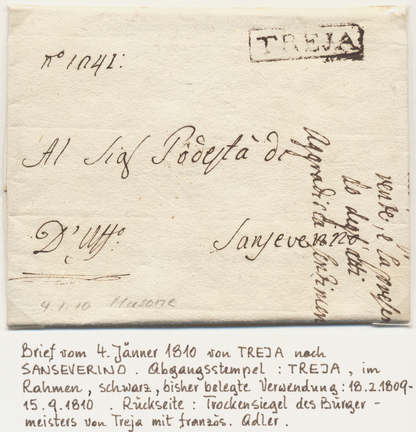 TREJA
nº 1041:
Al Sigʳ Podestà di
D'Uffº
Sanseverino
4.1.10 Musone
Brief vom 4. Jänner 1810 von TREJA nach
SANSEVERINO. Abgangsstempel: TREJA, im
Rahmen, schwarz, bisher belegte Verwendung: 18.2.1809-
15.9.1810. Rückseite: Trockensiegel des Bürger-
meisters von Treja mit französ. Adler.